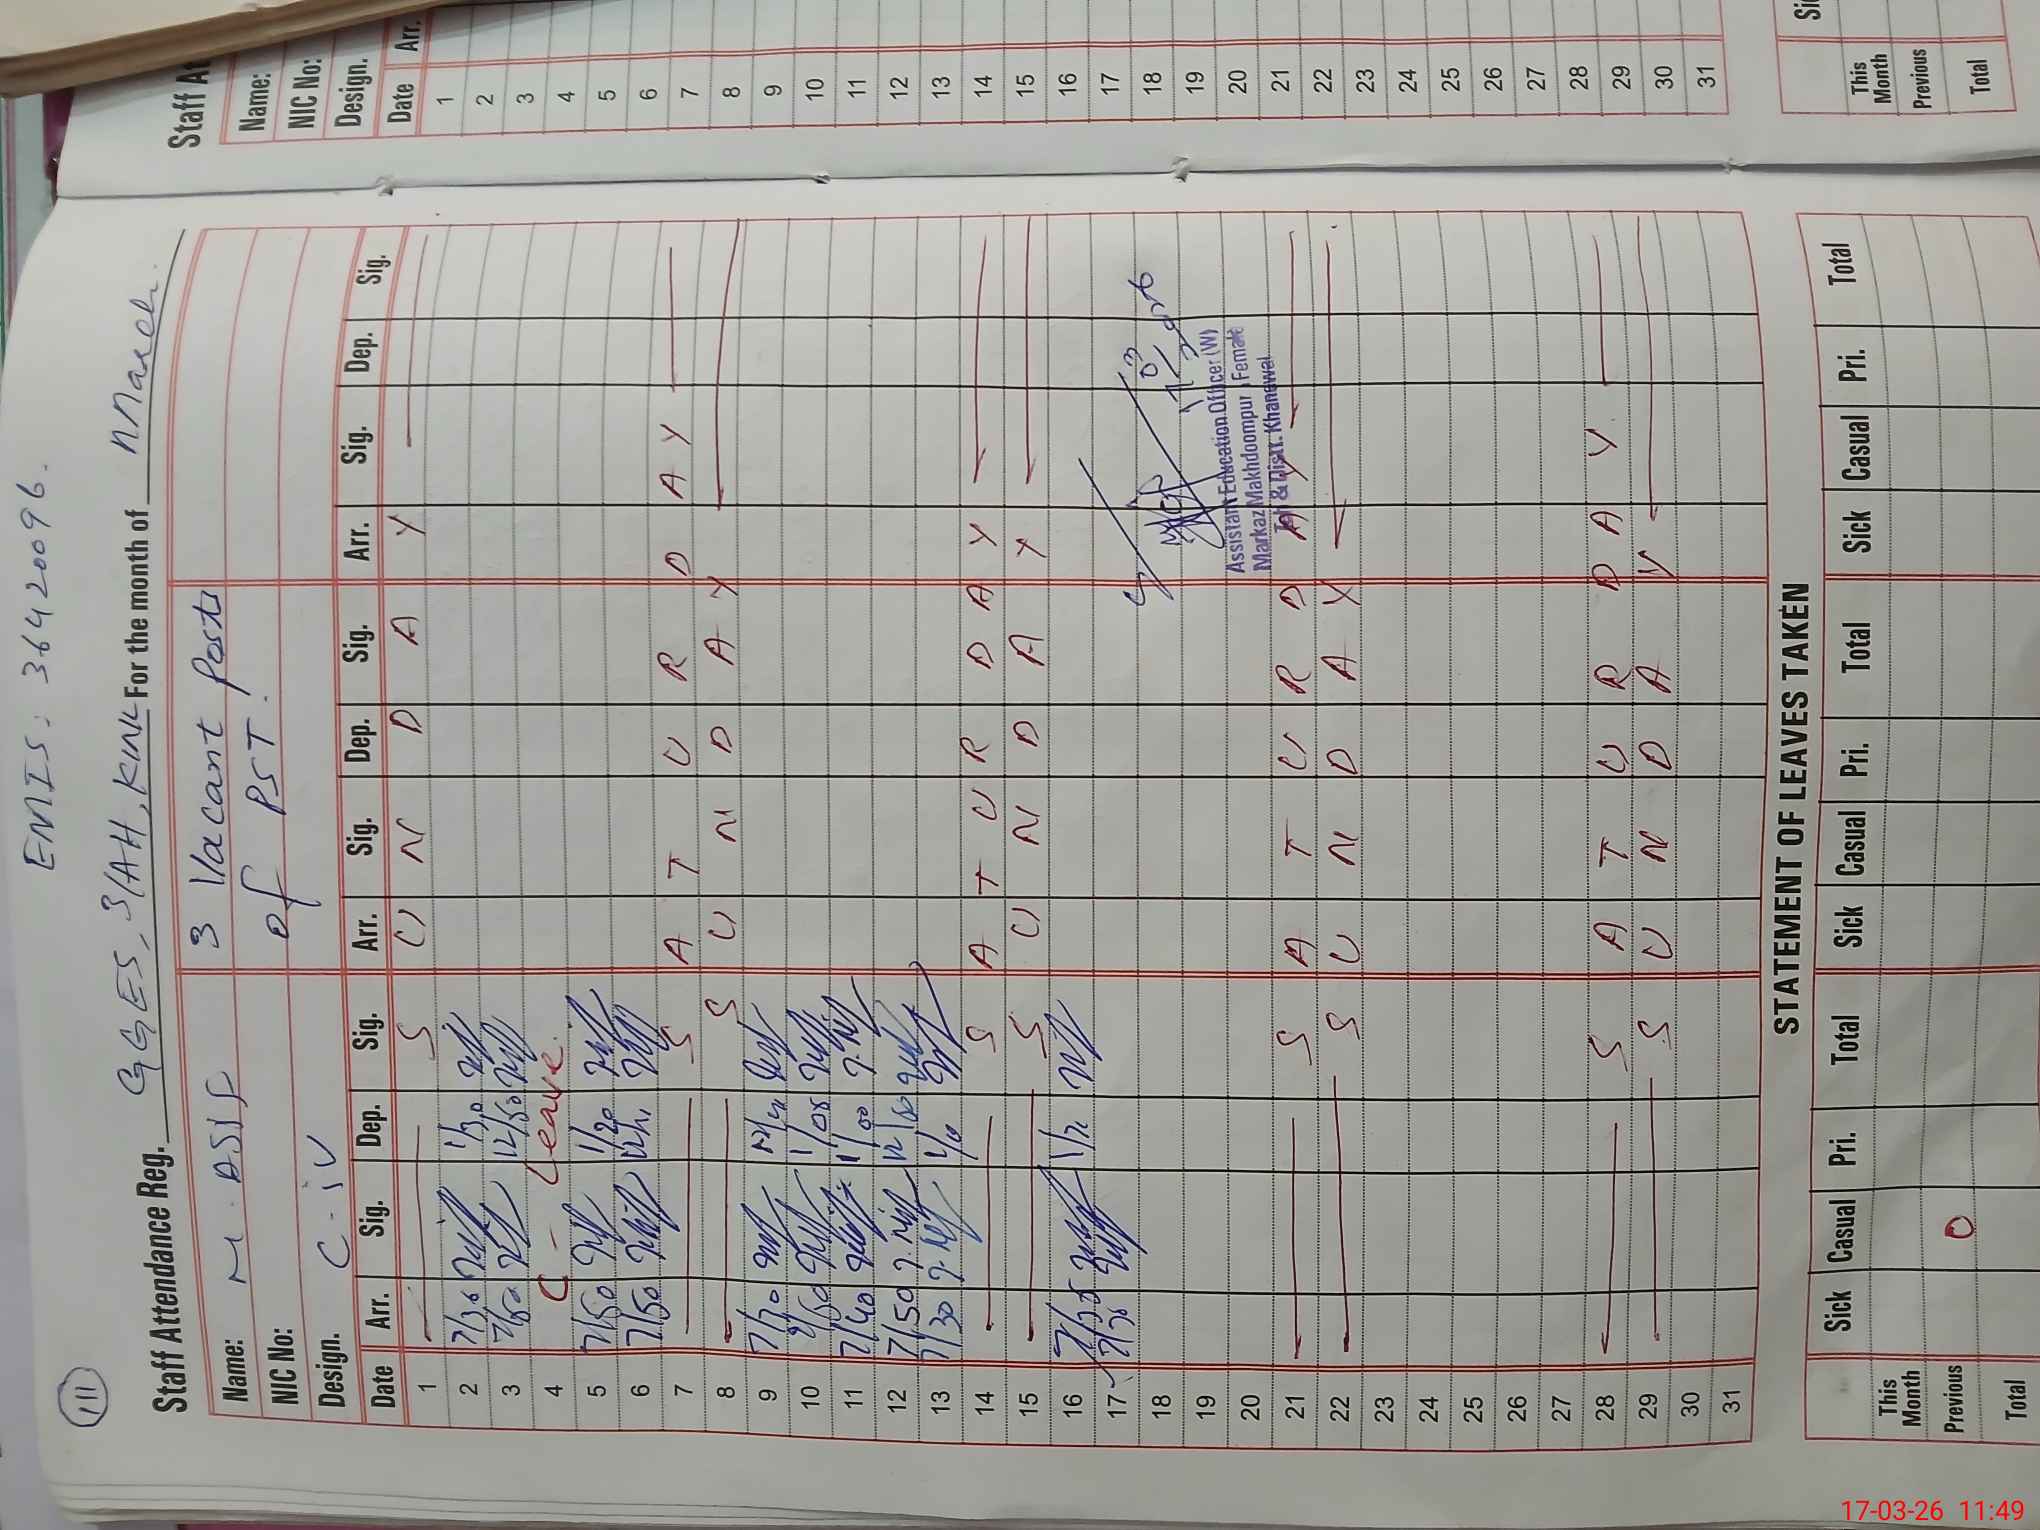 111
EMIS: 36420096.
Staff Attendance Reg. GGES, 3/AH, KWL For the month of March.
Name: M. ASIF 3 Vacant Posts
NIC No: of PST.
Design. C-iV
Date Arr. Sig. Dep. Sig. Arr. Sig. Dep. Sig. Arr. Sig. Dep. Sig.
1 S U N D A Y
2 7/30 1/30
3 7/50 12/50
4 C - Leave.
5 7/50 1/20
6 7/50
7 S A T U R D A Y
8 S U N D A Y
9 7/30
10 1/05
11 7/40 1/00
12 7/50 12/50
13 7/30
14 S A T U R D A Y
15 S U N D A Y
16
17
18
19
20
21 S A T U R D A Y
22 S U N D A Y
23
24
25
26
27
28 S A T U R D A Y
29 S U N D A Y
30
31
Assistant Education Officer (W)
Markaz Makhdoompur, Female
Teh & Distt. Khanewal
STATEMENT OF LEAVES TAKEN
Sick Casual Pri. Total Sick Casual Pri. Total Sick Casual Pri. Total
This Month
Previous 0
Total
Staff At
Name:
NIC No:
Design.
Date Arr.
1
2
3
4
5
6
7
8
9
10
11
12
13
14
15
16
17
18
19
20
21
22
23
24
25
26
27
28
29
30
31
This Month
Previous
Total
17-03-26 11:49